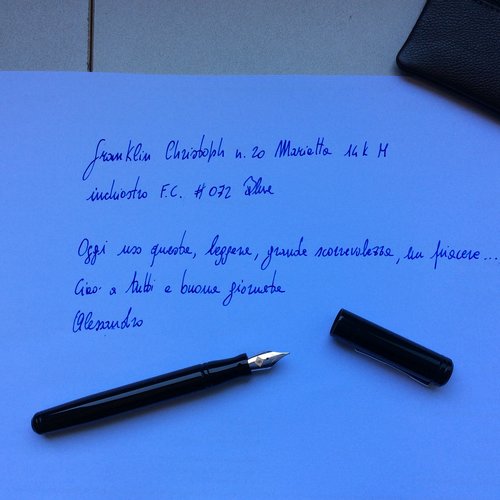 Franklin Christoph n. 20 Marietta 14k M
inchiostro F.C. #072 Blue
Oggi uso questa, leggera, grande scorrevolezza, un piacere...
Ciao a tutti e buona giornata
Alessandro